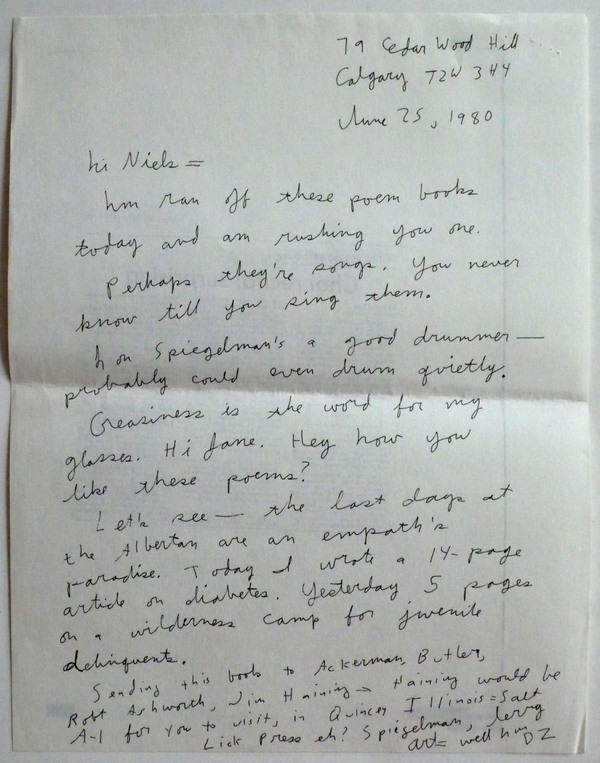 79 Cedar Wood Hill
Calgary T2W 3H4
June 25, 1980
hi Niels =
hm ran off these poem books
today and am rushing you one.
Perhaps they're songs. You never
know till you sing them.
Lon Spiegelman's a good drummer —
probably could even drum quietly.
Greasiness is the word for my
glasses. Hi Jane. Hey how you
like these poems?
Let's see — the last days at
the Albertan are an empath's
paradise. Today I wrote a 14-page
article on diabetes. Yesterday 5 pages
on a wilderness camp for juvenile
delinquents.
Sending this book to Ackerman, Butler,
Robt Ashworth, Jim Haining → Haining would be
A-1 for you to visit, in Quincy Illinois = Salt
Lick Press eh? Spiegelman,
art = well hm DZ